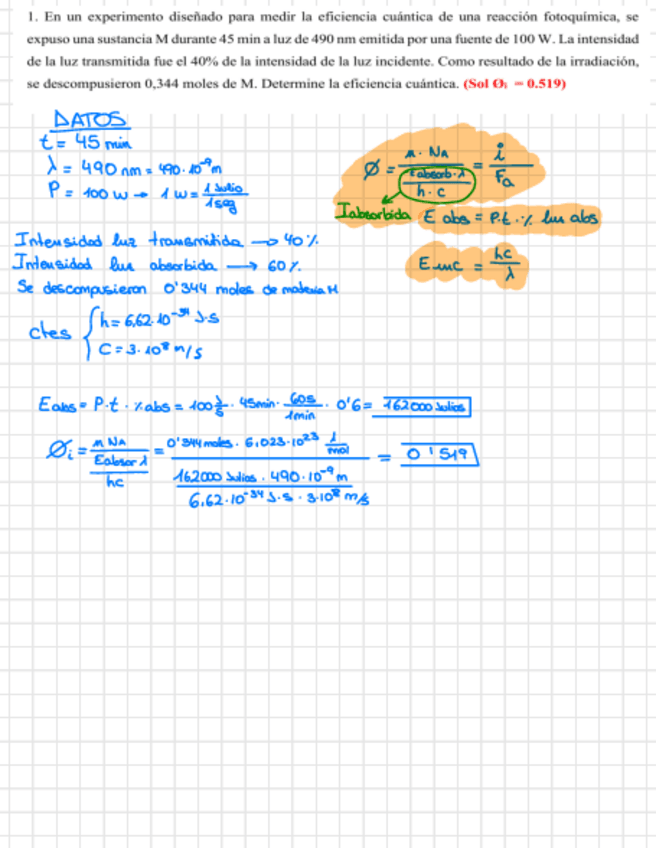 1. En un experimento diseñado para medir la eficiencia cuántica de una reacción fotoquímica, se
expuso una sustancia M durante 45 min a luz de 490 nm emitida por una fuente de 100 W. La intensidad
de la luz transmitida fue el 40% de la intensidad de la luz incidente. Como resultado de la irradiación,
se descompusieron 0,344 moles de M. Determine la eficiencia cuántica. (Sol Øi = 0.519)
DATOS
t = 45 min
λ = 490 nm = 490·10⁻⁹ m
P = 100 w → 1 w = 1 Julio / 1 seg
Ø = n · NA / (Eabsorb · λ / h · c) = i / Fa
Iabsorbida
E abs = P.t . % luz abs
E inc = hc / λ
Intensidad luz transmitida → 40 %
Intensidad luz absorbida → 60 %
Se descompusieron 0'344 moles de materia M
ctes { h = 6,62·10⁻³⁴ J·s
C = 3·10⁸ m/s
Eabs = P·t · % abs = 100 J/s · 45min · 60s / 1min · 0'6 = 162000 Julios
Øi = n NA / (Eabsor λ / hc) = 0'344 moles · 6,023·10²³ 1/mol / (162000 Julios · 490·10⁻⁹ m / 6,62·10⁻³⁴ J·s · 3·10⁸ m/s) = 0'519